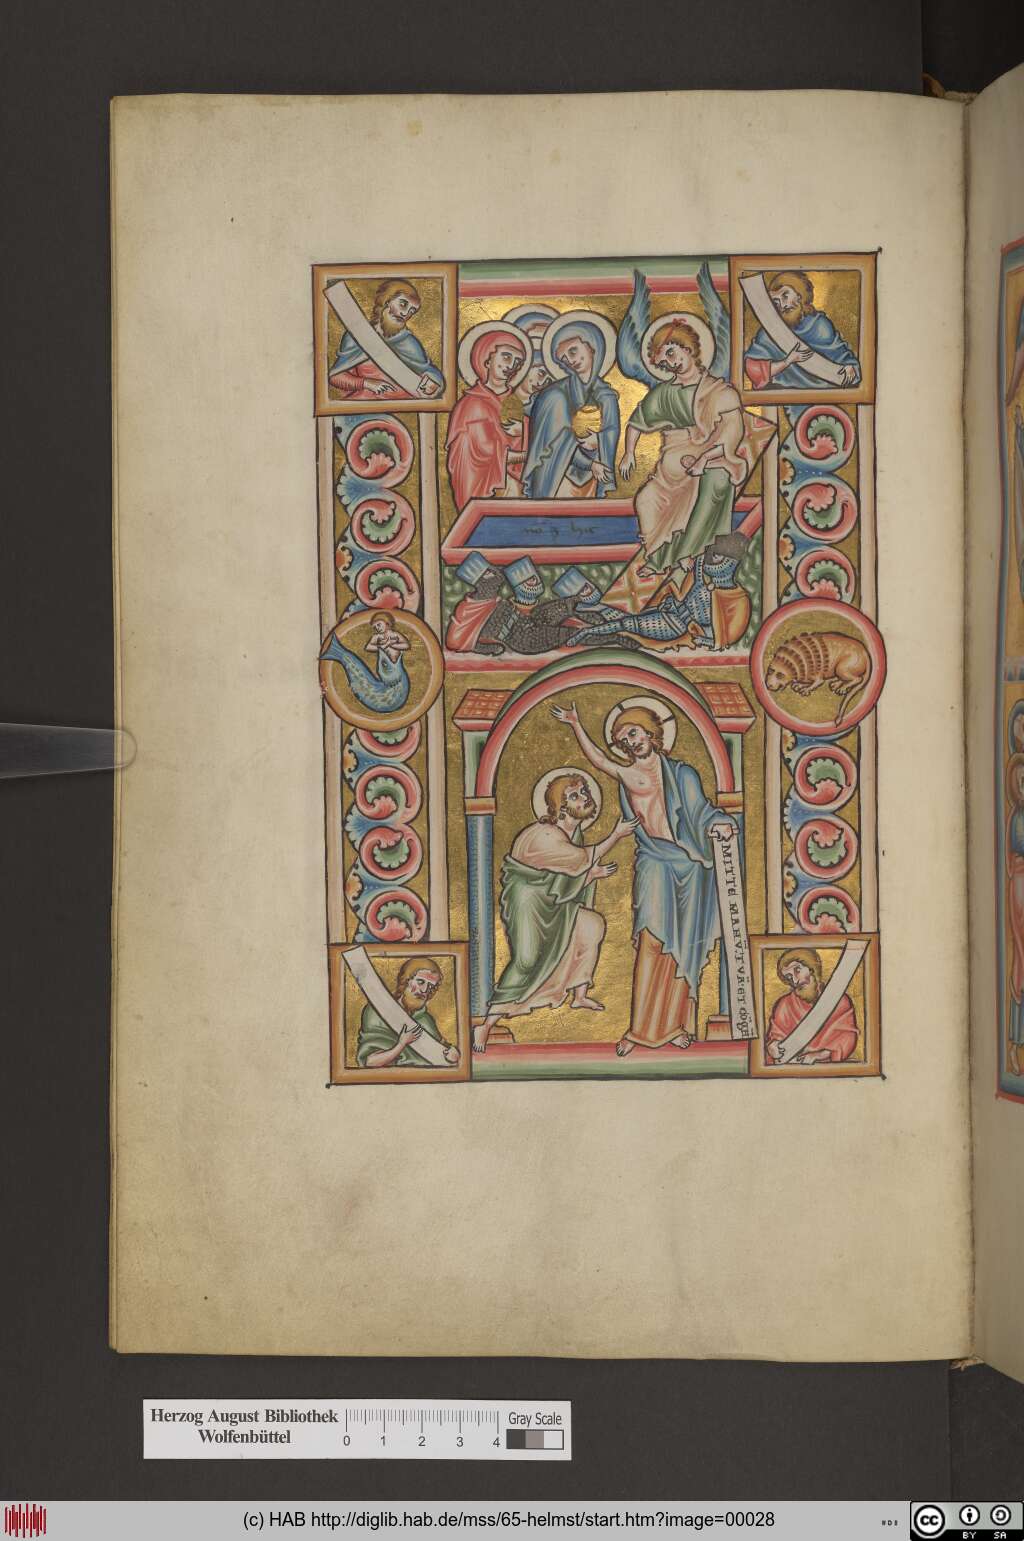 MITTE MANŪ TVĀ ET
Herzog August Bibliothek
Wolfenbüttel
0 1 2 3 4
Gray Scale
(c) HAB http://diglib.hab.de/mss/65-helmst/start.htm?image=00028
cc
BY SA